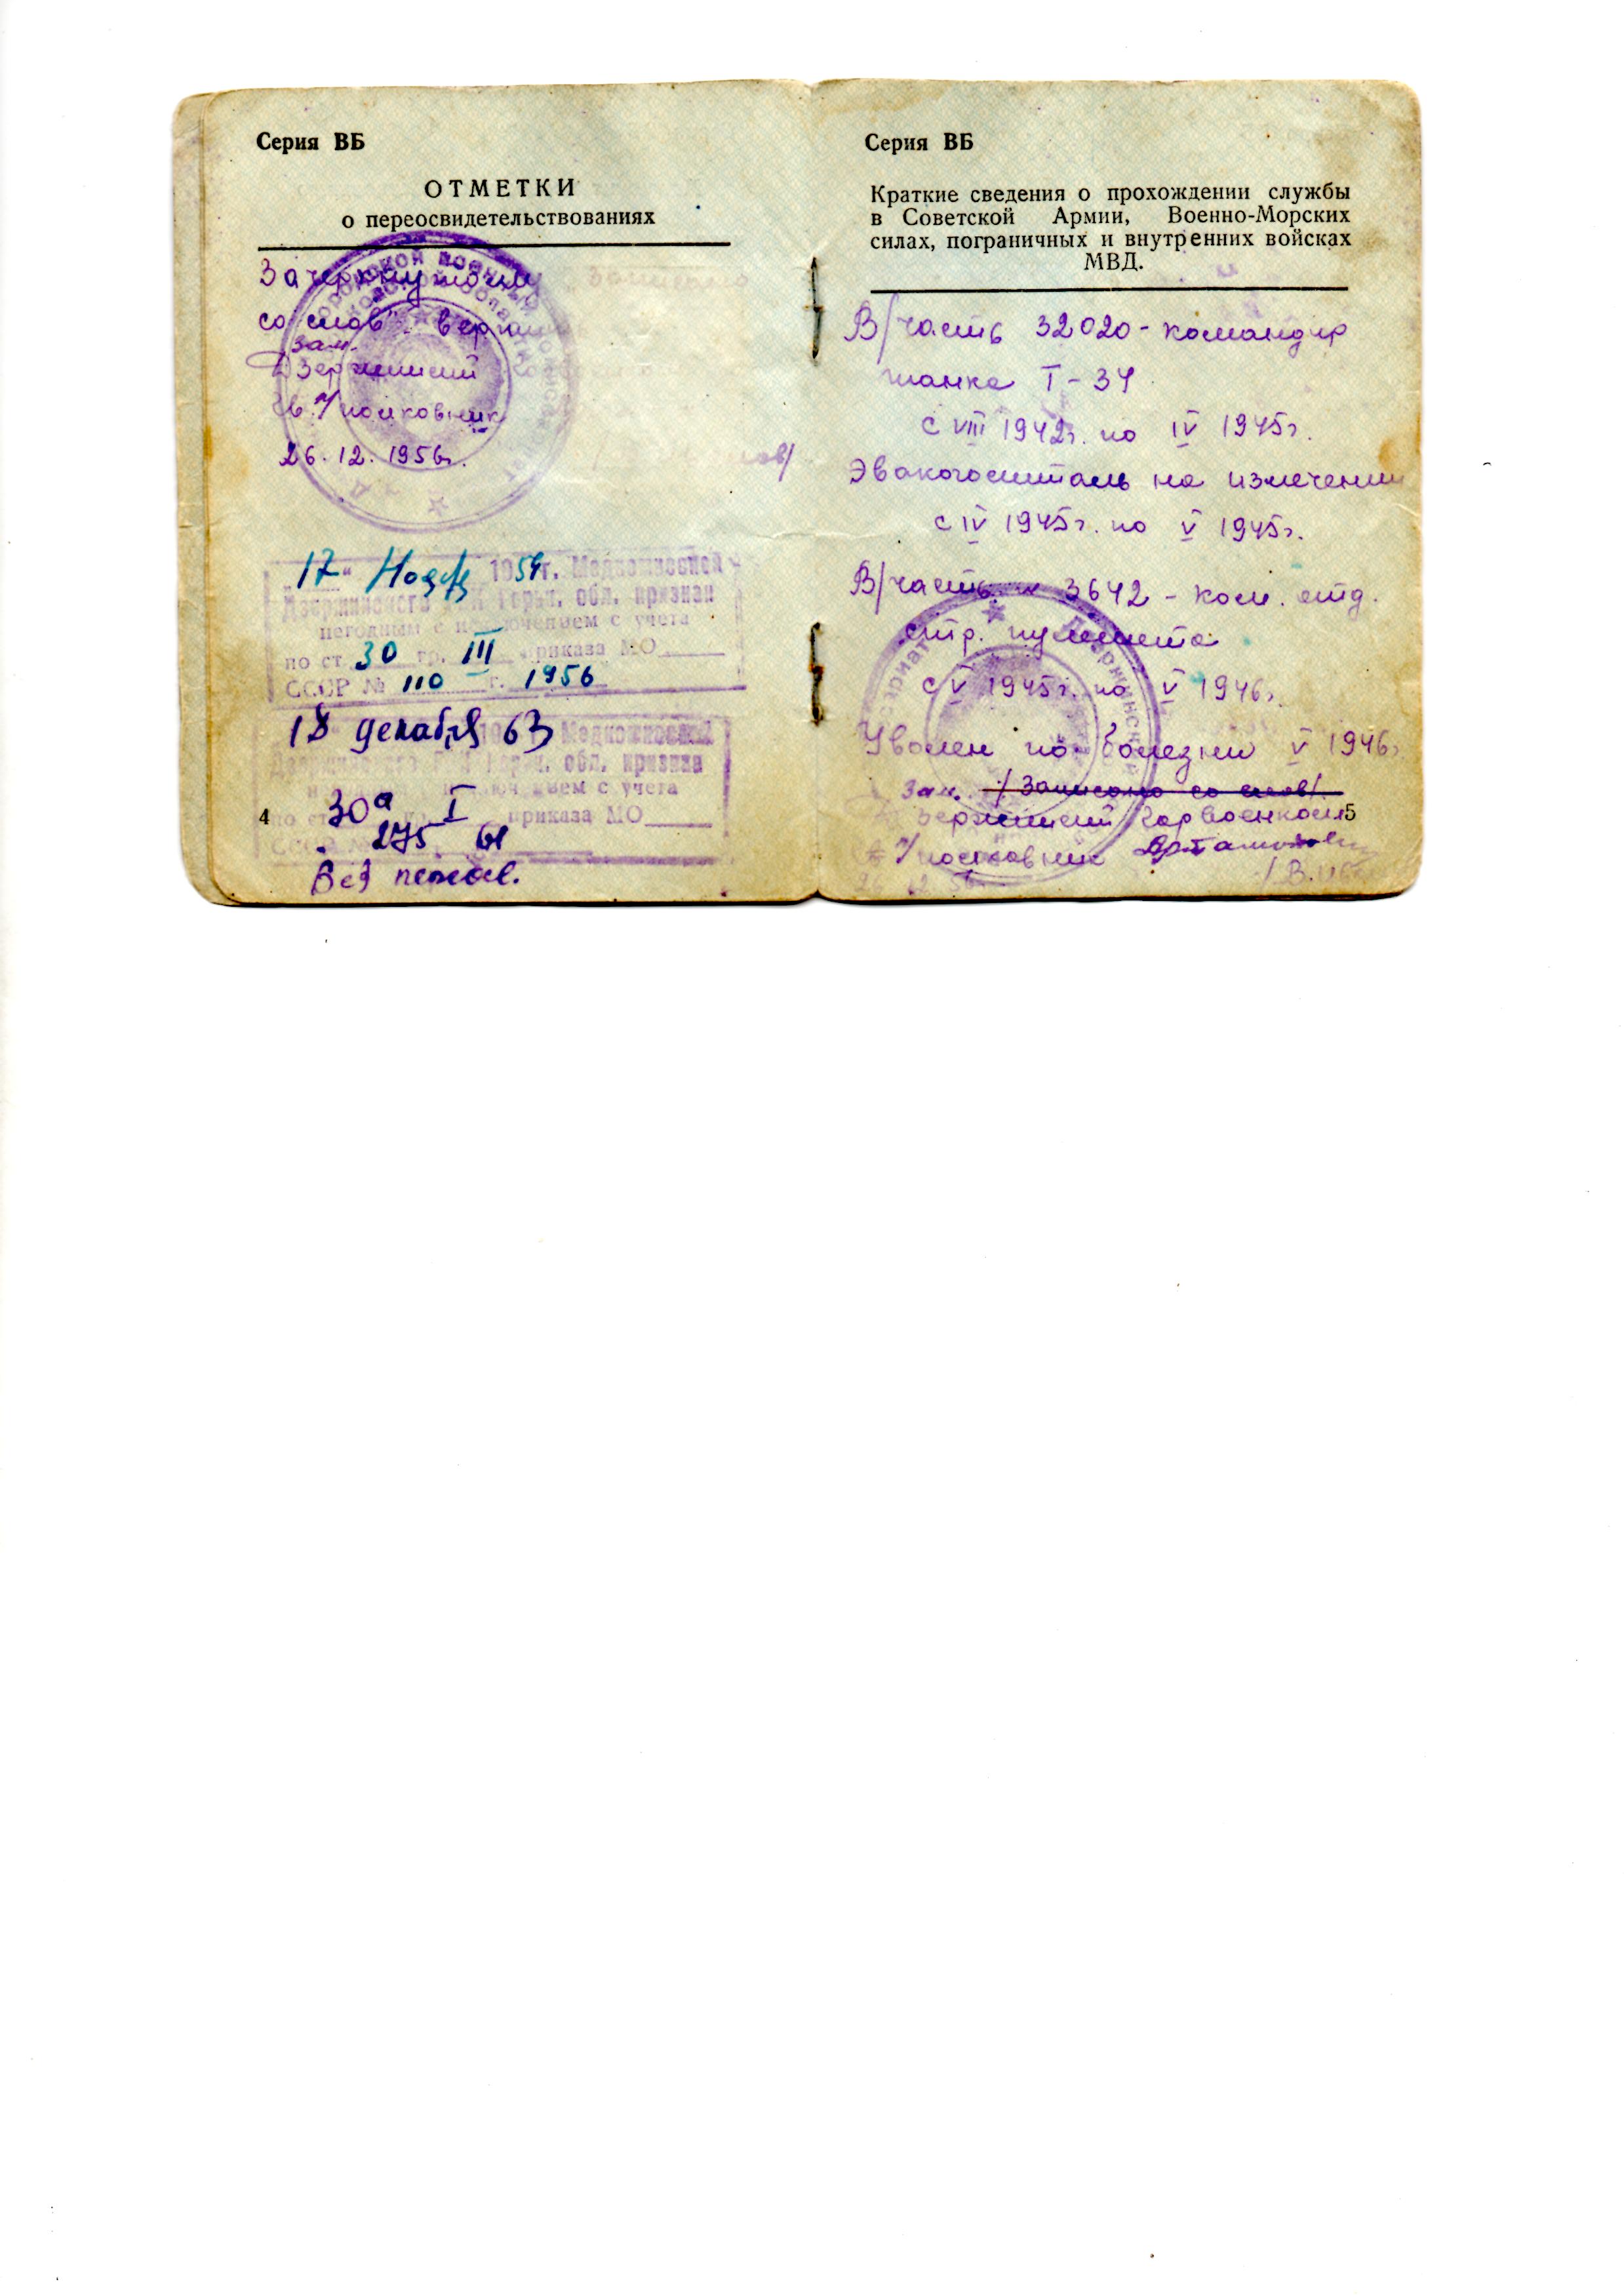 Серия ВБ
ОТМЕТКИ
о переосвидетельствованиях
Зачеркнутому
со слов" верить
Зам.
Дзержинский
п/полковник
26.12.1956г.
17" Нояб 1959г. Медкомиссией
Дзержинского ГВК Горьк. обл. признан
негодным с исключением с учета
по ст. 30 гр. III приказа МО
СССР № 110 г. 1956
18 декабря 63 Медкомиссией
Дзержинского ГВК Горьк. обл. признан
исключением с учета
30а I приказа МО
275 61
Без
4
Серия ВБ
Краткие сведения о прохождении службы
в Советской Армии, Военно-Морских
силах, пограничных и внутренних войсках
МВД.
В/часть 32020 - командир
танка Т-34
с VIII 1942г. по IV 1945г.
Эвакогоспиталь на излечении
с IV 1945г. по V 1945г.
В/часть 3642 - ком. отд.
стр. пулемета
с V 1945г. по V 1946г.
Уволен по болезни V 1946г
Зам. /Записано со слов/
Дзержинский Горвоенком
п/полковник
26 12 56
5